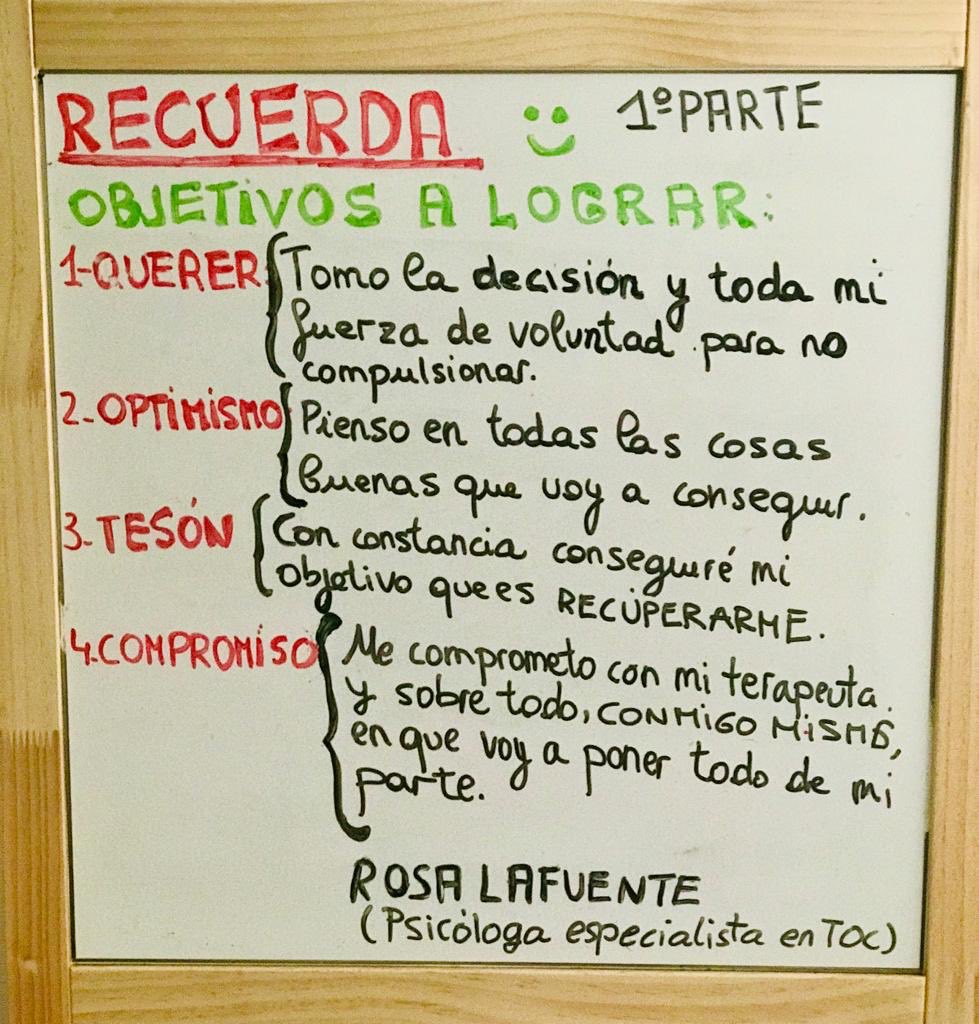 RECUERDA 1º PARTE
OBJETIVOS A LOGRAR:
1-QUERER Tomo la decisión y toda mi
fuerza de voluntad para no
compulsionar.
2-OPTIMISMO Pienso en todas las cosas
buenas que voy a conseguir.
3-TESÓN Con constancia conseguiré mi
objetivo que es RECUPERARME.
4-COMPROMISO Me comprometo con mi terapeuta
y sobre todo, CONMIGO MISM@,
en que voy a poner todo de mi
parte.
ROSA LAFUENTE
(Psicóloga especialista en TOC)